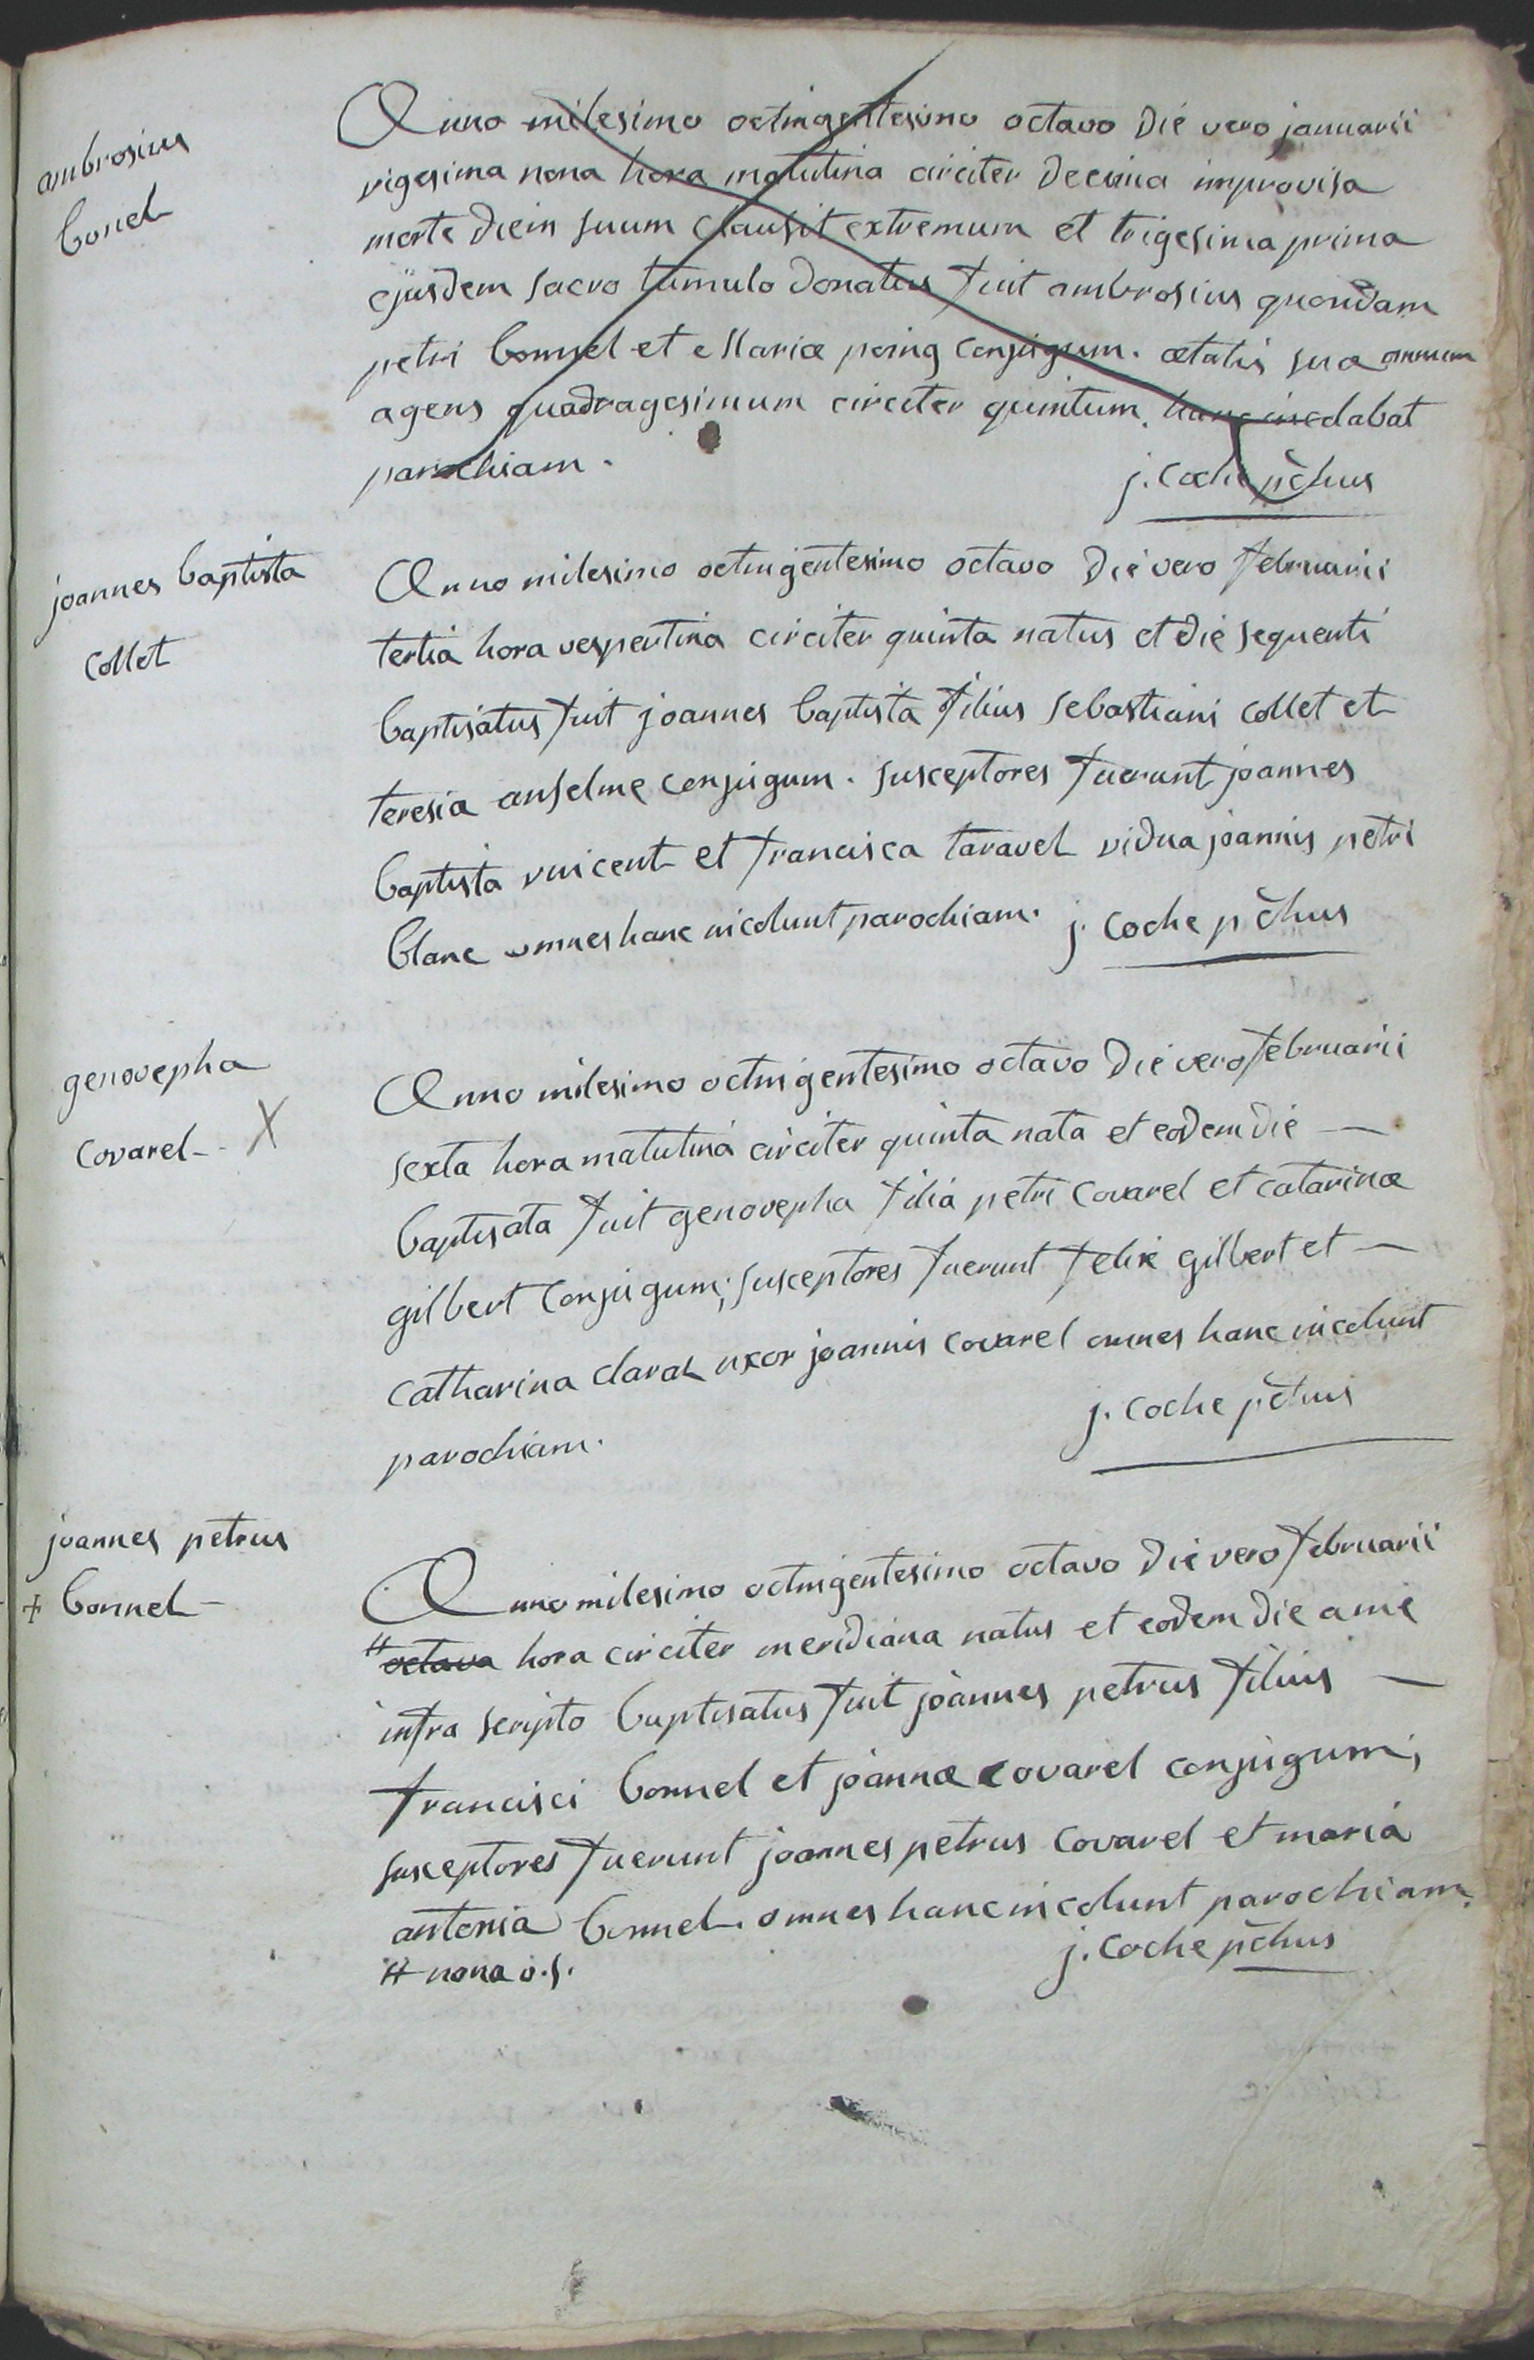 ambrosius
bonel
Anno milesimo octingentesimo octavo die vero januarii
vigesima nona hora matutina circiter decima improvisa
morte diem suum clausit extremum et trigesima prima
ejusdem sacro tumulo donatus fuit ambrosius quondam
petri bonnel et Mariæ poing conjugum. ætatis suæ annum
agens quadragesimum circiter quintum. hanc incolabat
parochiam.
j. coche pc̃hus
joannes baptista
collet
Anno milesimo octingentesimo octavo die vero februarii
tertia hora vespertina circiter quinta natus et die sequenti
baptisatus fuit joannes baptista filius sebastiani collet et
teresia anselme conjugum. susceptores fuerunt joannes
baptista vincent et francisca taravel vidua joannis petri
blanc omnes hanc incolunt parochiam. j. coche pc̃hus
genovepha
covarel - X
Anno milesimo octingentesimo octavo die vero februarii
sexta hora matutina circiter quinta nata et eodem die —
baptisata fuit genovepha filia petri covarel et catarinæ
gilbert conjugum; susceptores fuerunt felix gilbert et —
catharina claraz uxor joannis covarel omnes hanc incolunt
parochiam.
j. coche pc̃hus
joannes petrus
+ bonnel -
Anno milesimo octingentesimo octavo die vero februarii
# octava hora circiter meridiana natus et eodem die a me
infra scripto baptisatus fuit joannes petrus filius —
francisci bonnel et joannæ covarel conjugum;
susceptores fuerunt joannes petrus covarel et maria
antonia bonnel. omnes hanc incolunt parochiam.
# nona o.s.
j. coche pc̃hus